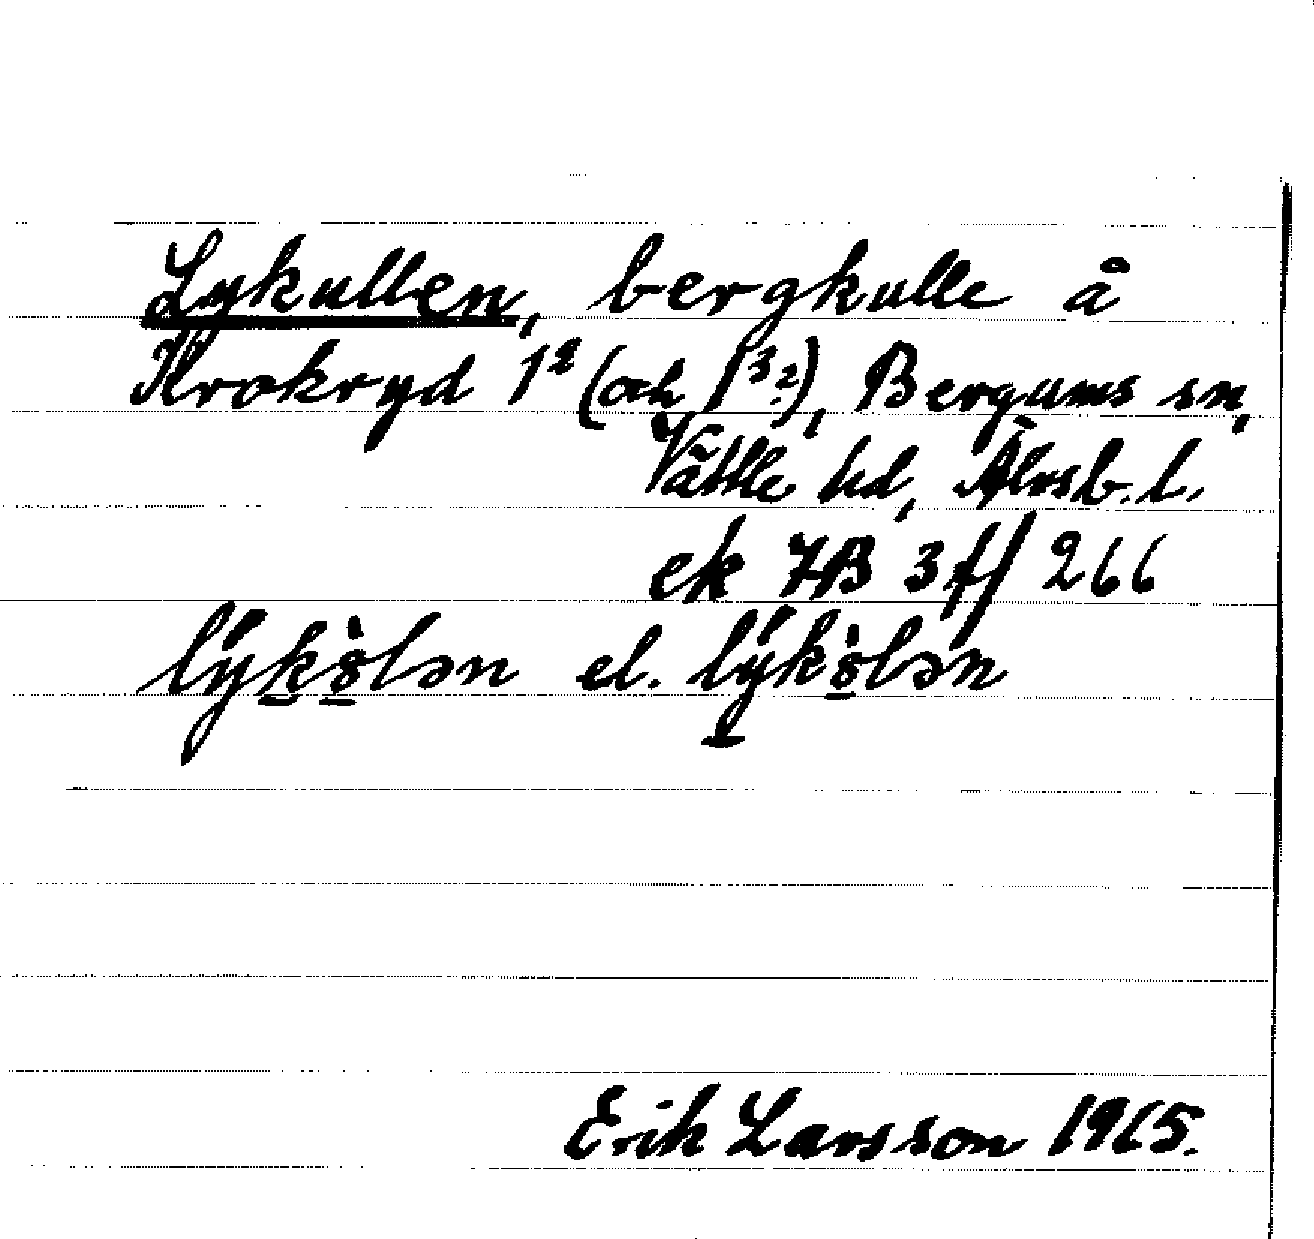 Lykullen, bergkulle å
Krokryd 1² (och 1³?), Bergums sn,
Vättle hd, Älvsb. l.
ek 7B 3f/266
el.
Erik Larsson 1965.